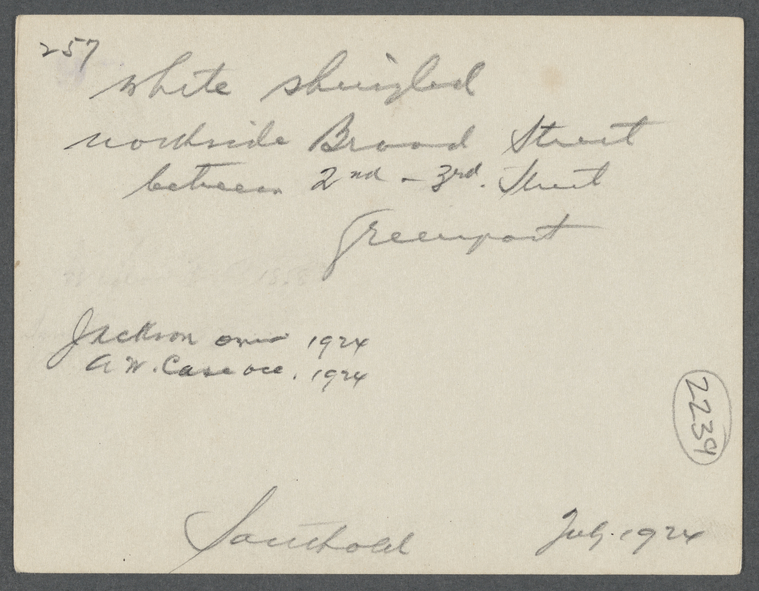 257
white shingled
northside Broad Street
between 2nd - 3rd. Street
Greenport
Jackson owner 1924
A.W. Case occ. 1924
2239
Southold
July. 1924